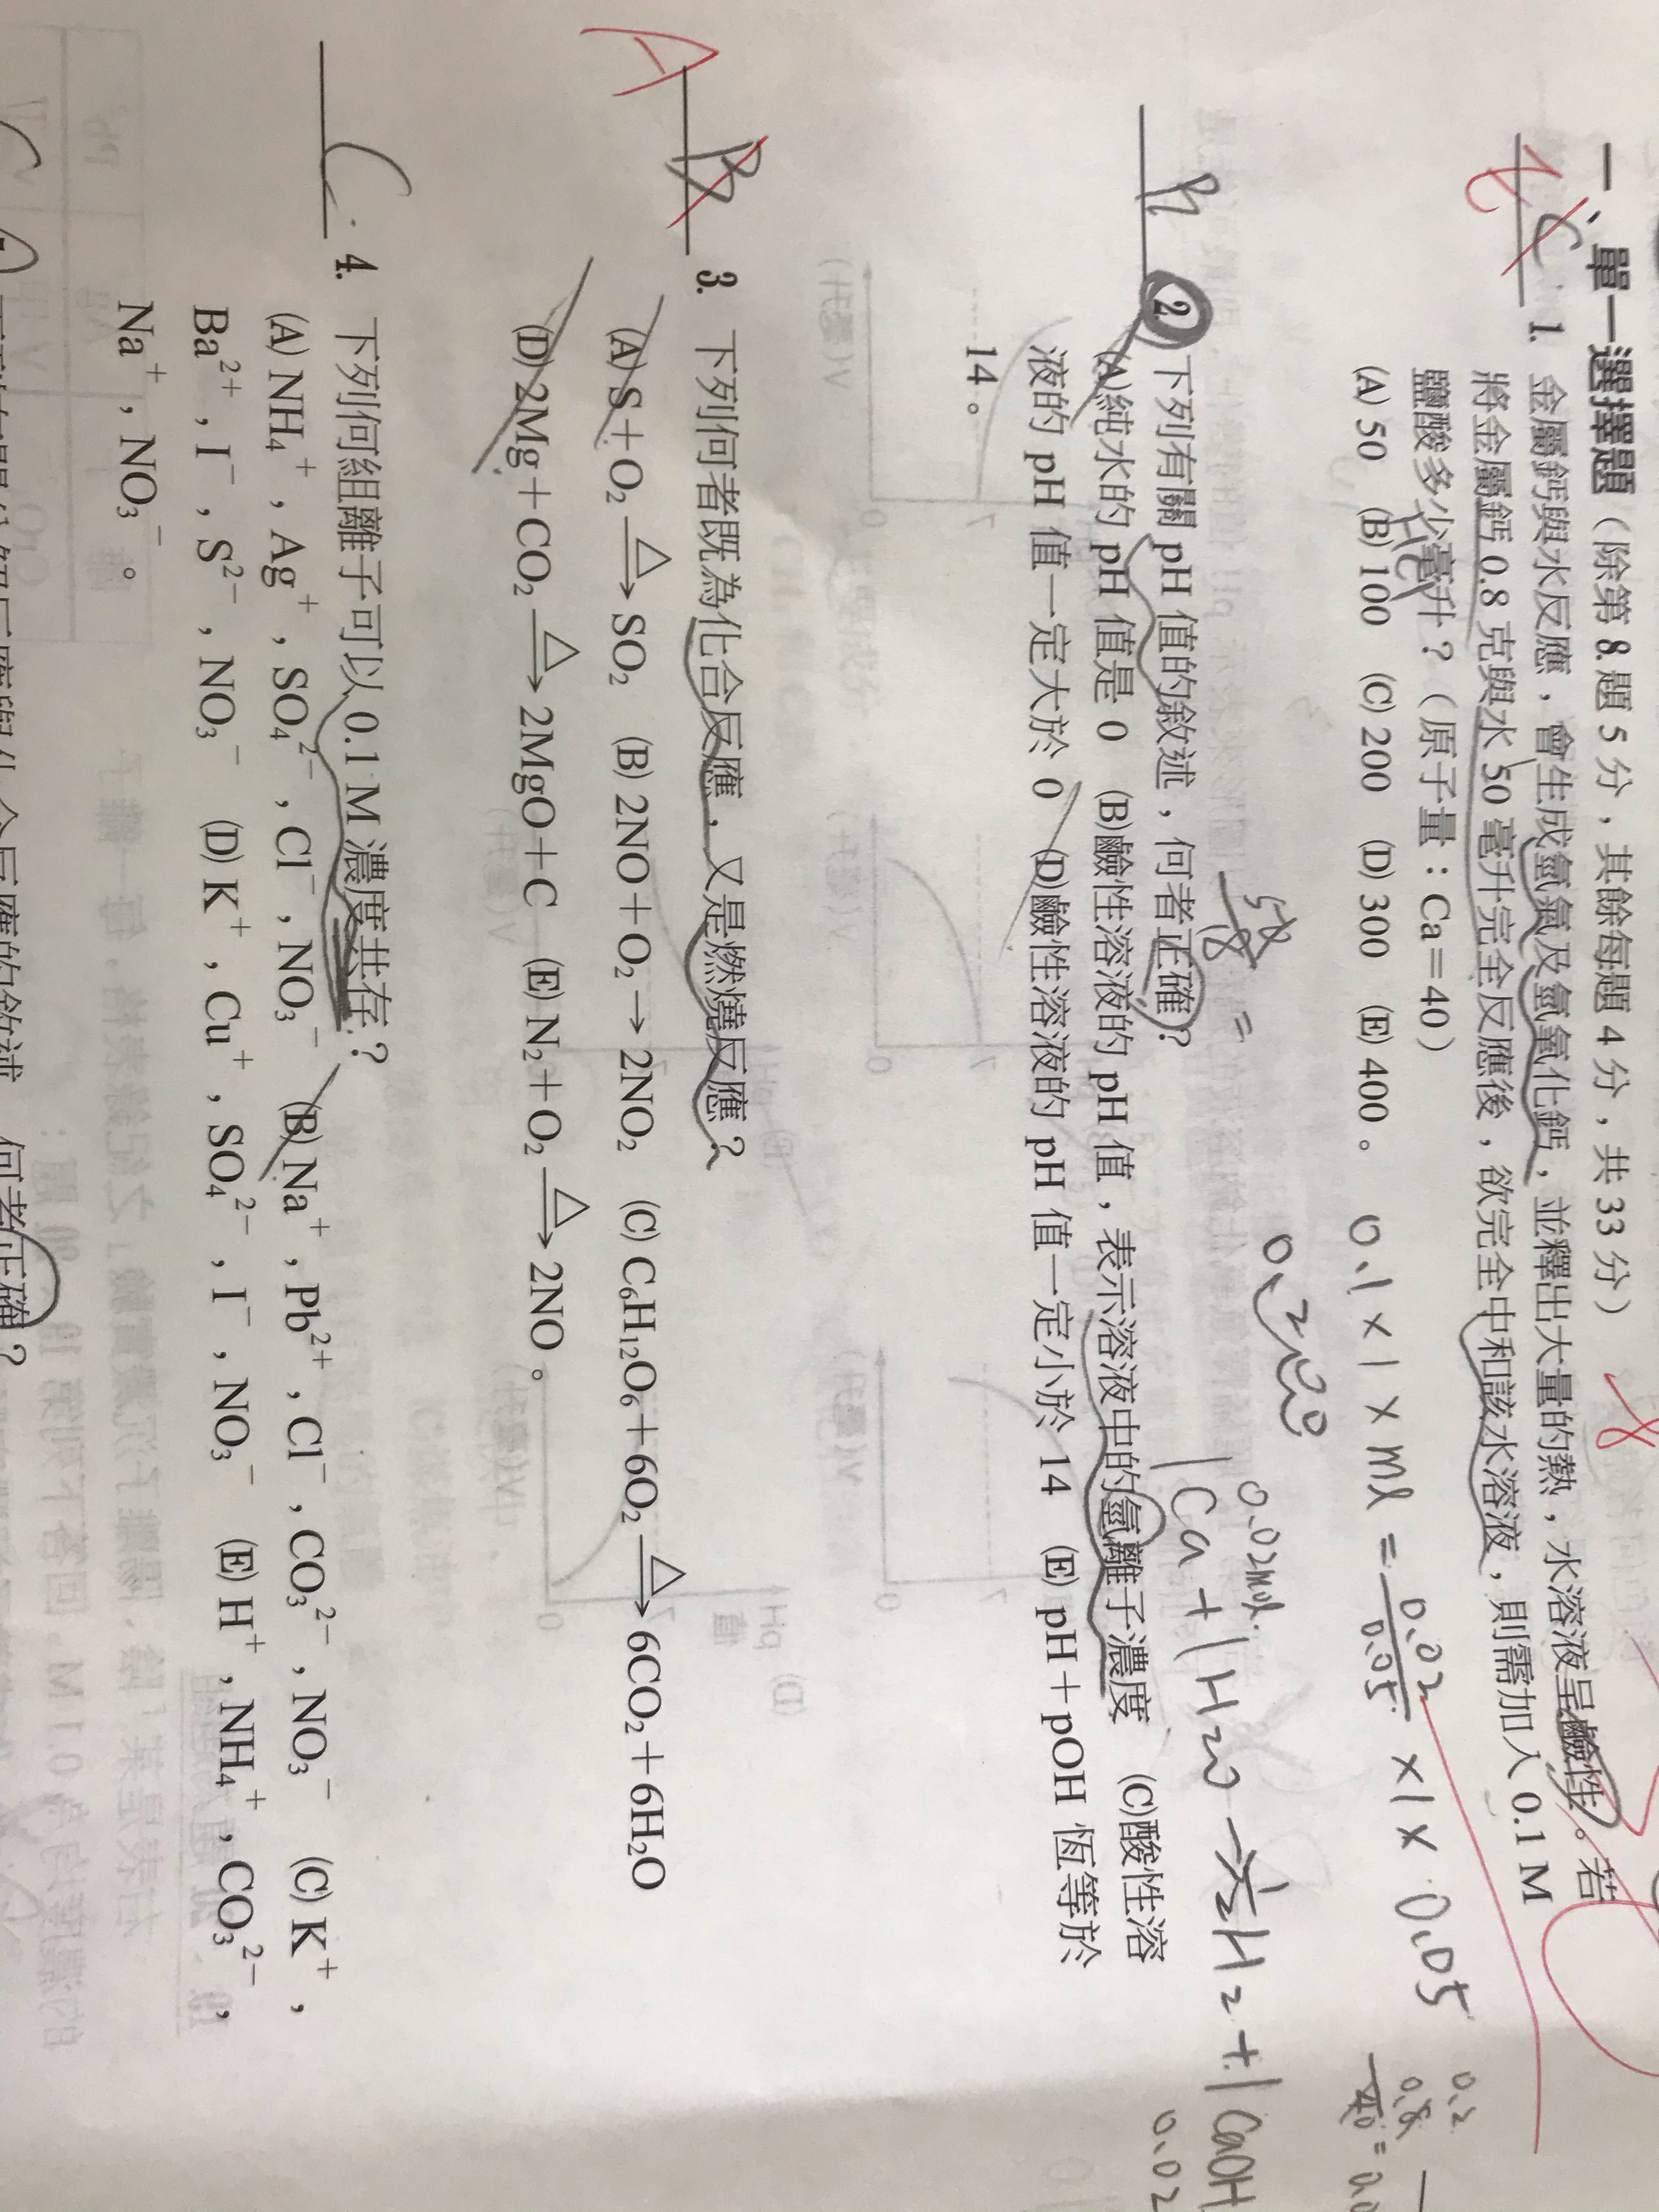 一、單一選擇題（除第 8.題 5 分，其餘每題 4 分，共 33 分）
C 1. 金屬鈣與水反應，會生成氫氣及氫氧化鈣，並釋出大量的熱，水溶液呈鹼性。若
將金屬鈣 0.8 克與水 50 毫升完全反應後，欲完全中和該水溶液，則需加入 0.1 M
鹽酸多少毫升？（原子量：Ca＝40）
HCl
(A) 50 (B) 100 (C) 200 (D) 300 (E) 400。
0.1 × 1 × ml = 0.02/0.05 × 1 × 0.05
0.2
0.02mol.
1Ca + 1H2O → 1/2H2 + 1CaOH
0.02
2. 下列有關 pH 值的敘述，何者正確？
(A)純水的 pH 值是 0 (B)鹼性溶液的 pH 值，表示溶液中的氫離子濃度 (C)酸性溶
液的 pH 值一定大於 0 (D)鹼性溶液的 pH 值一定小於 14 (E) pH＋pOH 恆等於
14。
A B 3. 下列何者既為化合反應，又是燃燒反應？
(A) S＋O₂ △→ SO₂ (B) 2NO＋O₂→2NO₂ (C) C₆H₁₂O₆＋6O₂ △→ 6CO₂＋6H₂O
(D) 2Mg＋CO₂ △→ 2MgO＋C (E) N₂＋O₂ △→ 2NO。
C 4. 下列何組離子可以 0.1 M 濃度共存？
(A) NH₄⁺，Ag⁺，SO₄²⁻，Cl⁻，NO₃⁻ (B) Na⁺，Pb²⁺，Cl⁻，CO₃²⁻，NO₃⁻ (C) K⁺，
Ba²⁺，I⁻，S²⁻，NO₃⁻ (D) K⁺，Cu⁺，SO₄²⁻，I⁻，NO₃⁻ (E) H⁺，NH₄⁺，CO₃²⁻，
Na⁺，NO₃⁻。
何者正確？